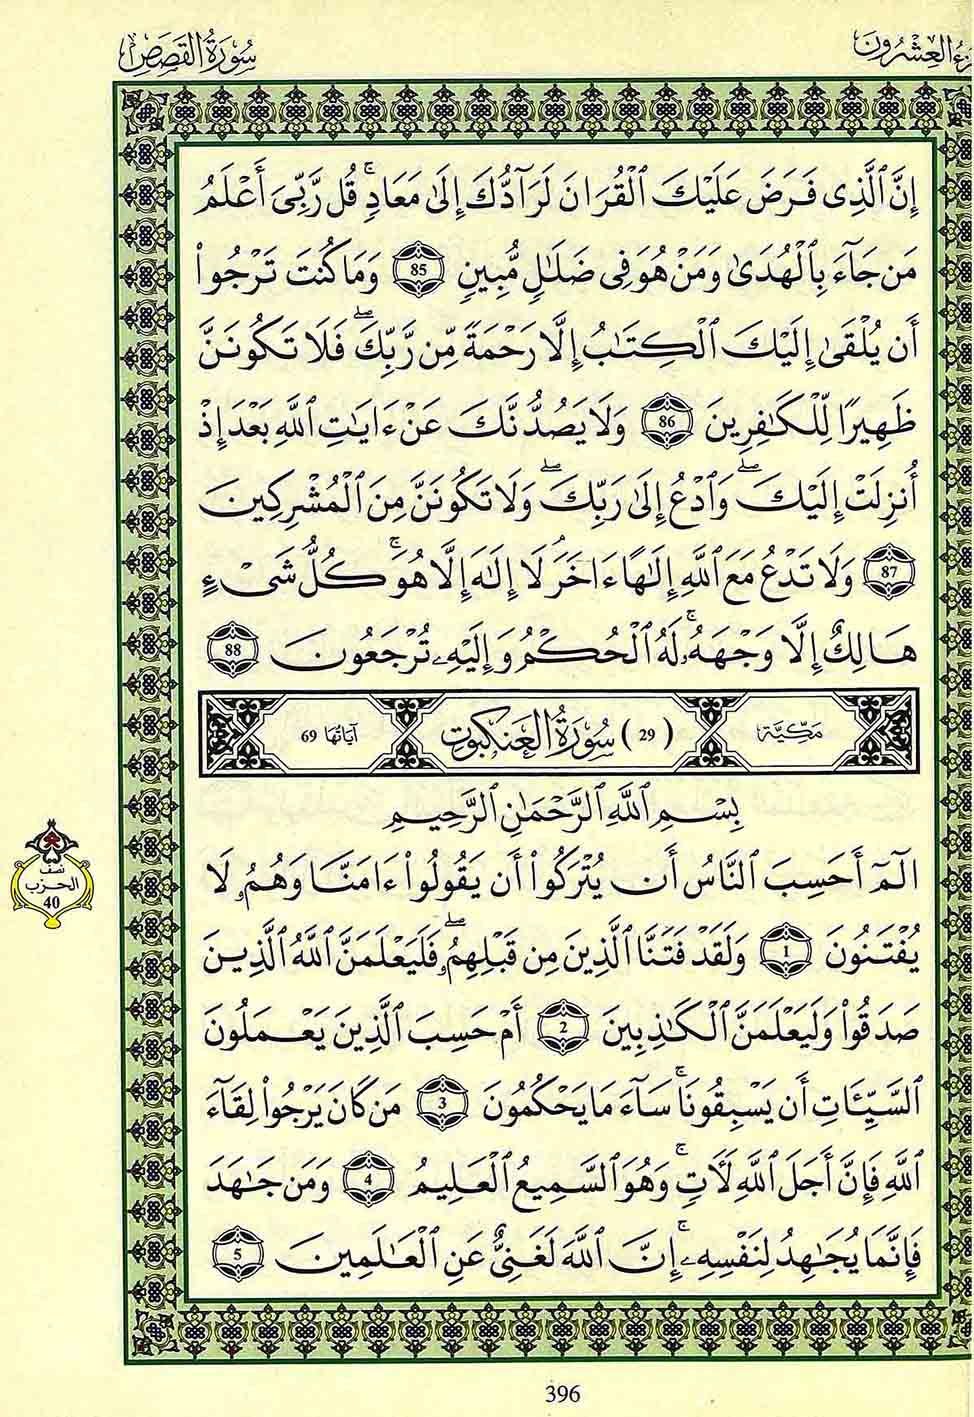 زء العشرون
سُورَةُ القَصَصِ
إِنَّ ٱلَّذِى فَرَضَ عَلَيْكَ ٱلْقُرَانَ لَرَآدُّكَ إِلَىٰ مَعَادٍۚ قُل رَّبِّىَ أَعْلَمُ
مَن جَآءَ بِٱلْهُدَىٰ وَمَنْ هُوَ فِى ضَلَٰلٍ مُّبِينٍ 85 وَمَا كُنتَ تَرْجُواْ
أَن يُلْقَىٰ إِلَيْكَ ٱلْكِتَٰبُ إِلَّا رَحْمَةً مِّن رَّبِّكَۖ فَلَا تَكُونَنَّ
ظَهِيرًا لِّلْكَٰفِرِينَ 86 وَلَا يَصُدُّنَّكَ عَنْ ءَايَٰتِ ٱللَّهِ بَعْدَ إِذْ
أُنزِلَتْ إِلَيْكَۖ وَٱدْعُ إِلَىٰ رَبِّكَۖ وَلَا تَكُونَنَّ مِنَ ٱلْمُشْرِكِينَ
87 وَلَا تَدْعُ مَعَ ٱللَّهِ إِلَٰهًا ءَاخَرَۘ لَا إِلَٰهَ إِلَّا هُوَۚ كُلُّ شَىْءٍ
هَالِكٌ إِلَّا وَجْهَهُۥۚ لَهُ ٱلْحُكْمُ وَإِلَيْهِۦ تُرْجَعُونَ 88
مَكِّيَّة (29) سُورَةُ العَنكَبُوت آيَاتُهَا 69
بِسْمِ ٱللَّهِ ٱلرَّحْمَٰنِ ٱلرَّحِيمِ
الٓمٓ أَحَسِبَ ٱلنَّاسُ أَن يُتْرَكُواْ أَن يَقُولُواْ ءَامَنَّا وَهُمُۥ لَا
نصف
الحزب
40
يُفْتَنُونَ 1 وَلَقَدْ فَتَنَّا ٱلَّذِينَ مِن قَبْلِهِمُۥۖ فَلَيَعْلَمَنَّ ٱللَّهُ ٱلَّذِينَ
صَدَقُواْ وَلَيَعْلَمَنَّ ٱلْكَٰذِبِينَ 2 أَمْ حَسِبَ ٱلَّذِينَ يَعْمَلُونَ
ٱلسَّيِّـَٔاتِ أَن يَسْبِقُونَاۚ سَآءَ مَا يَحْكُمُونَ 3 مَن كَانَ يَرْجُواْ لِقَآءَ
ٱللَّهِ فَإِنَّ أَجَلَ ٱللَّهِ لَأٓتٍۚ وَهُوَ ٱلسَّمِيعُ ٱلْعَلِيمُ 4 وَمَن جَٰهَدَ
فَإِنَّمَا يُجَٰهِدُ لِنَفْسِهِۦۚ إِنَّ ٱللَّهَ لَغَنِىٌّ عَنِ ٱلْعَٰلَمِينَ 5
396